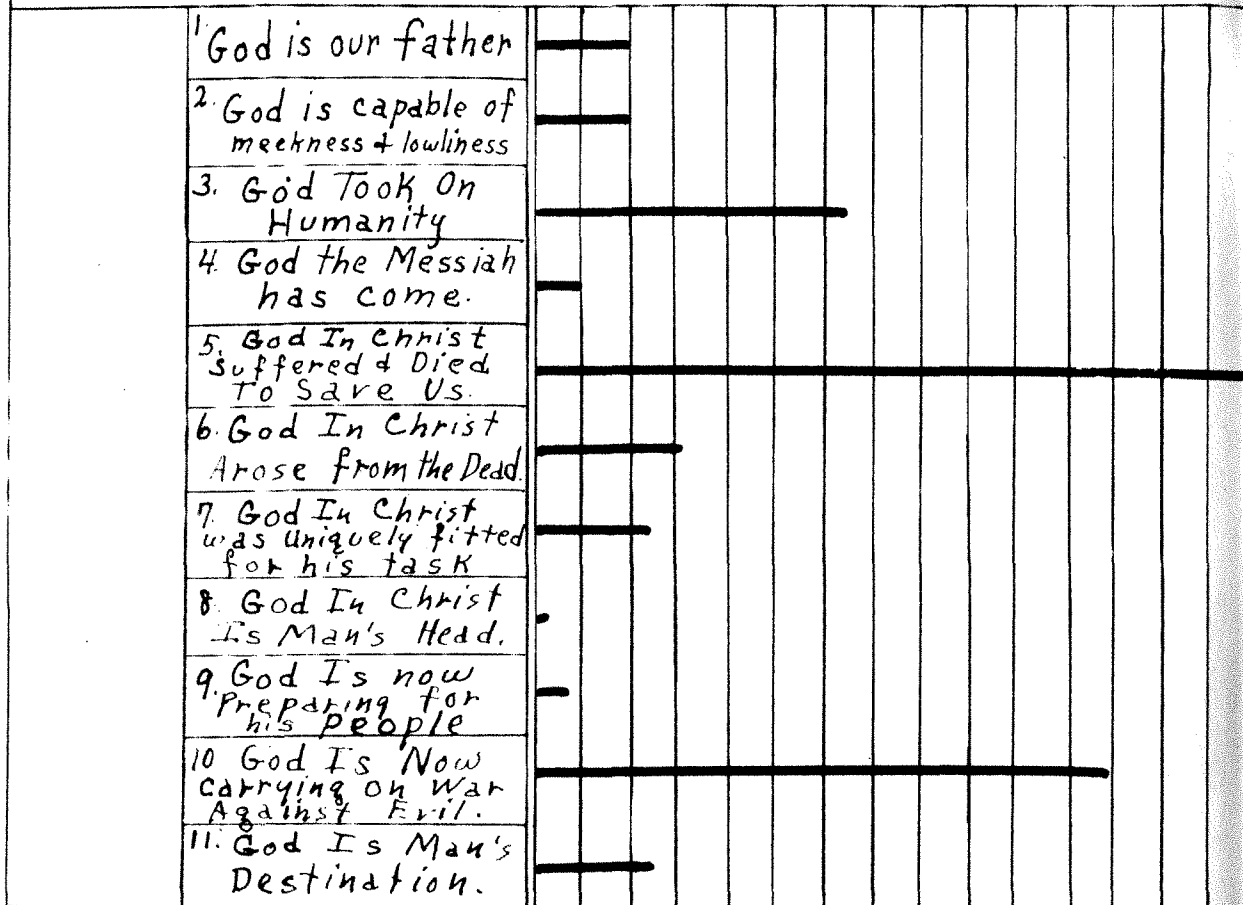 1. God is our father
2. God is capable of
meekness & lowliness
3. God Took On
Humanity
4. God the Messiah
has come.
5. God In Christ
suffered & Died
To Save Us.
6. God In Christ
Arose from the Dead.
7. God In Christ
was uniquely fitted
for his task
8. God In Christ
Is Man's Head.
9. God Is now
Preparing for
his People
10 God Is Now
Carrying on War
Against Evil.
11. God Is Man's
Destination.